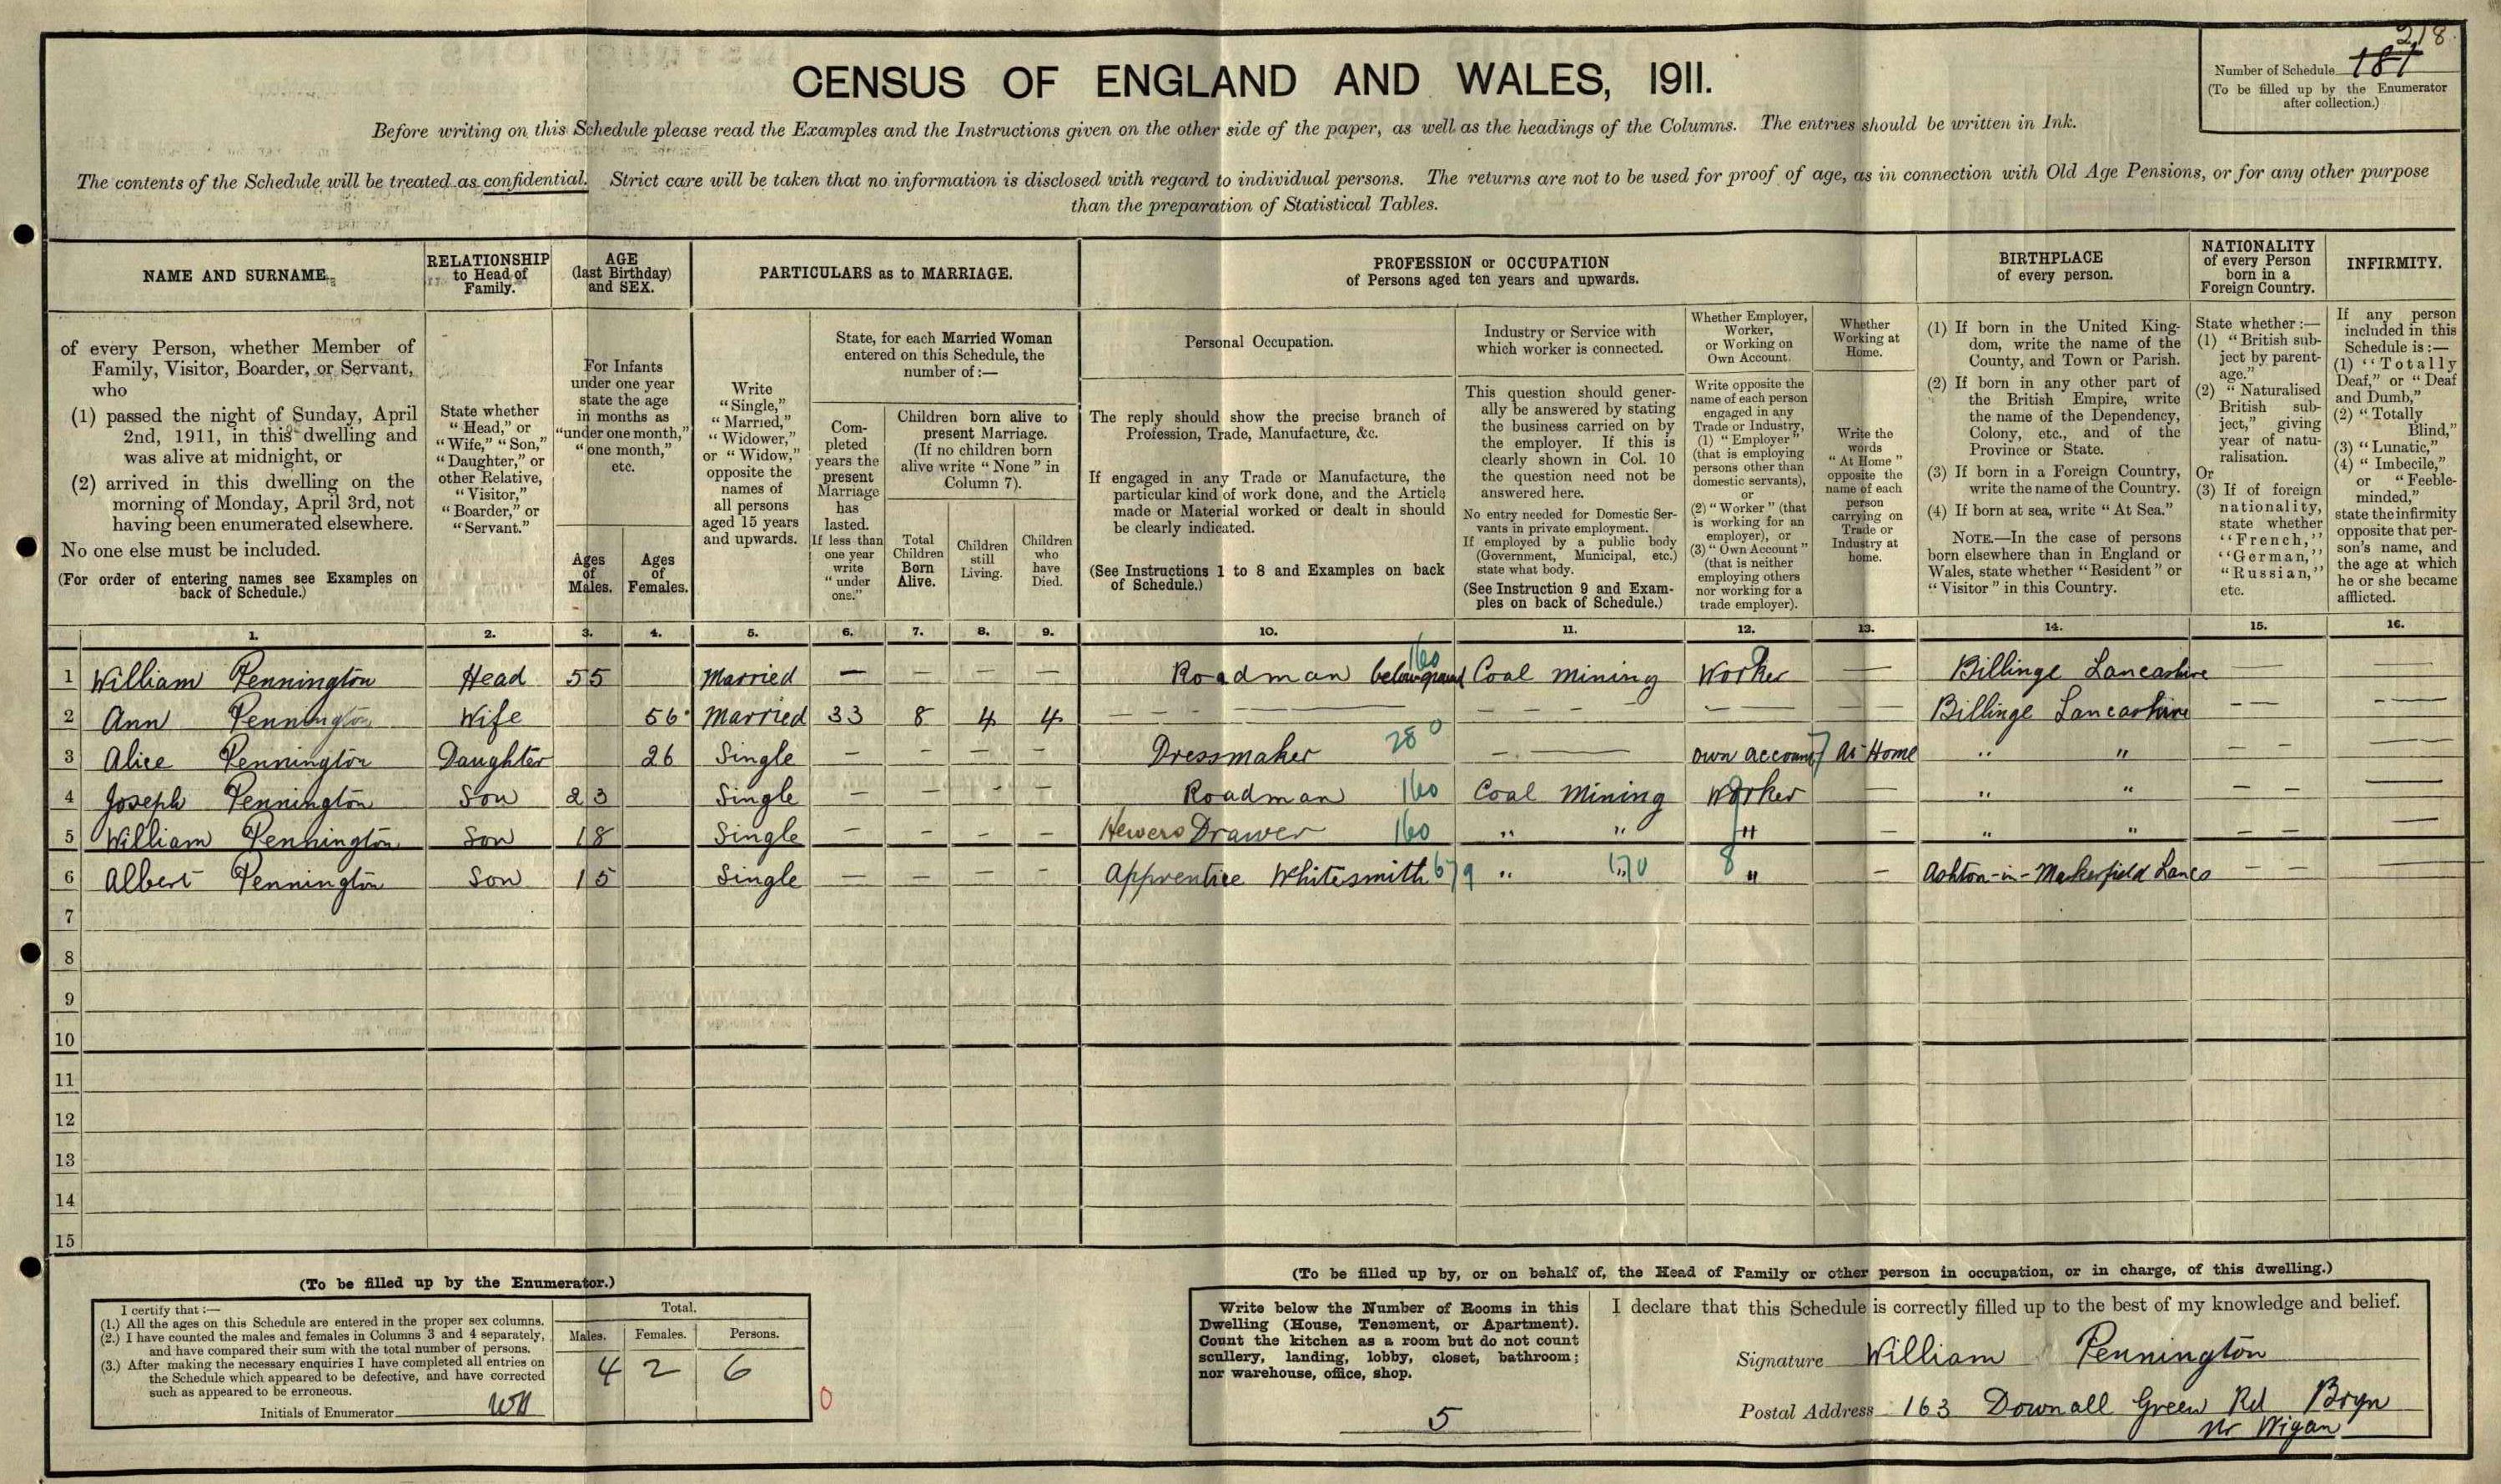 218
CENSUS OF ENGLAND AND WALES, 1911.
Number of Schedule 181
(To be filled up by the Enumerator
after collection.)
Before writing on this Schedule please read the Examples and the Instructions given on the other side of the paper, as well as the headings of the Columns. The entries should be written in Ink.
The contents of the Schedule will be treated as confidential. Strict care will be taken that no information is disclosed with regard to individual persons. The returns are not to be used for proof of age, as in connection with Old Age Pensions, or for any other purpose
than the preparation of Statistical Tables.
NAME AND SURNAME
of every Person, whether Member of
Family, Visitor, Boarder, or Servant,
who
(1) passed the night of Sunday, April
2nd, 1911, in this dwelling and
was alive at midnight, or
(2) arrived in this dwelling on the
morning of Monday, April 3rd, not
having been enumerated elsewhere.
No one else must be included.
(For order of entering names see Examples on
back of Schedule.)
RELATIONSHIP
to Head of
Family.
State whether
"Head," or
"Wife," "Son,"
"Daughter," or
other Relative,
"Visitor,"
"Boarder," or
"Servant."
AGE
(last Birthday)
and SEX.
For Infants
under one year
state the age
in months as
"under one month,"
"one month,"
etc.
Ages
of
Males.
Ages
of
Females.
PARTICULARS as to MARRIAGE.
Write
"Single,"
"Married,"
"Widower,"
or "Widow,"
opposite the
names of
all persons
aged 15 years
and upwards.
State, for each Married Woman
entered on this Schedule, the
number of:—
Com-
pleted
years the
present
Marriage
has
lasted.
If less than
one year
write
"under
one."
Children born alive to
present Marriage.
(If no children born
alive write "None" in
Column 7).
Total
Children
Born
Alive.
Children
still
Living.
Children
who
have
Died.
PROFESSION or OCCUPATION
of Persons aged ten years and upwards.
Personal Occupation.
The reply should show the precise branch of
Profession, Trade, Manufacture, &c.
If engaged in any Trade or Manufacture, the
particular kind of work done, and the Article
made or Material worked or dealt in should
be clearly indicated.
(See Instructions 1 to 8 and Examples on back
of Schedule.)
Industry or Service with
which worker is connected.
This question should gener-
ally be answered by stating
the business carried on by
the employer. If this is
clearly shown in Col. 10
the question need not be
answered here.
No entry needed for Domestic Ser-
vants in private employment.
If employed by a public body
(Government, Municipal, etc.)
state what body.
(See Instruction 9 and Exam-
ples on back of Schedule.)
Whether Employer,
Worker,
or Working on
Own Account.
Write opposite the
name of each person
engaged in any
Trade or Industry,
(1) "Employer"
(that is employing
persons other than
domestic servants),
or
(2) "Worker" (that
is working for an
employer), or
(3) "Own Account"
(that is neither
employing others
nor working for a
trade employer).
Whether
Working at
Home.
Write the
words
"At Home"
opposite the
name of each
person
carrying on
Trade or
Industry at
home.
BIRTHPLACE
of every person.
(1) If born in the United King-
dom, write the name of the
County, and Town or Parish.
(2) If born in any other part of
the British Empire, write
the name of the Dependency,
Colony, etc., and of the
Province or State.
(3) If born in a Foreign Country,
write the name of the Country.
(4) If born at sea, write "At Sea."
NOTE.—In the case of persons
born elsewhere than in England or
Wales, state whether "Resident" or
"Visitor" in this Country.
NATIONALITY
of every Person
born in a
Foreign Country.
State whether:—
(1) "British sub-
ject by parent-
age."
(2) "Naturalised
British sub-
ject," giving
year of natu-
ralisation.
Or
(3) If of foreign
nationality,
state whether
"French,"
"German,"
"Russian,"
etc.
INFIRMITY.
If any person
included in this
Schedule is:—
(1) "Totally
Deaf," or "Deaf
and Dumb,"
(2) "Totally
Blind,"
(3) "Lunatic,"
(4) "Imbecile,"
or "Feeble-
minded,"
state the infirmity
opposite that per-
son's name, and
the age at which
he or she became
afflicted.
1. 2. 3. 4. 5. 6. 7. 8. 9. 10. 11. 12. 13. 14. 15. 16.
1 William Pennington Head 55 Married — — — — Roadman below ground 160 Coal Mining Worker — Billinge Lancashire — —
2 Ann Pennington Wife 56 Married 33 8 4 4 — — — — Billinge Lancashire — —
3 Alice Pennington Daughter 26 Single — — — — Dressmaker 280 — own account At Home " " — — —
4 Joseph Pennington Son 23 Single — — — — Roadman 160 Coal Mining Worker — " " — — —
5 William Pennington Son 18 Single — — — — Hewers Drawer 160 " " " — " " — — —
6 Albert Pennington Son 15 Single — — — — Apprentice Whitesmith 679 " " 170 8 " — Ashton-in-Makerfield Lancs — — —
7
8
9
10
11
12
13
14
15
(To be filled up by the Enumerator.)
I certify that:—
(1.) All the ages on this Schedule are entered in the proper sex columns.
(2.) I have counted the males and females in Columns 3 and 4 separately,
and have compared their sum with the total number of persons.
(3.) After making the necessary enquiries I have completed all entries on
the Schedule which appeared to be defective, and have corrected
such as appeared to be erroneous.
Initials of Enumerator
Total.
Males. Females. Persons.
4 2 6
0
(To be filled up by, or on behalf of, the Head of Family or other person in occupation, or in charge, of this dwelling.)
Write below the Number of Rooms in this
Dwelling (House, Tenement, or Apartment).
Count the kitchen as a room but do not count
scullery, landing, lobby, closet, bathroom;
nor warehouse, office, shop.
5
I declare that this Schedule is correctly filled up to the best of my knowledge and belief.
Signature William Pennington
Postal Address 163 Downall Green Rd Bryn
Nr Wigan